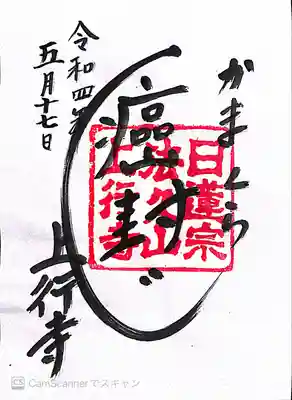 かまくら
癌封じ
上行寺
令和四年
五月十七日
日蓮宗
法久山
上行寺
CS CamScannerでスキャン